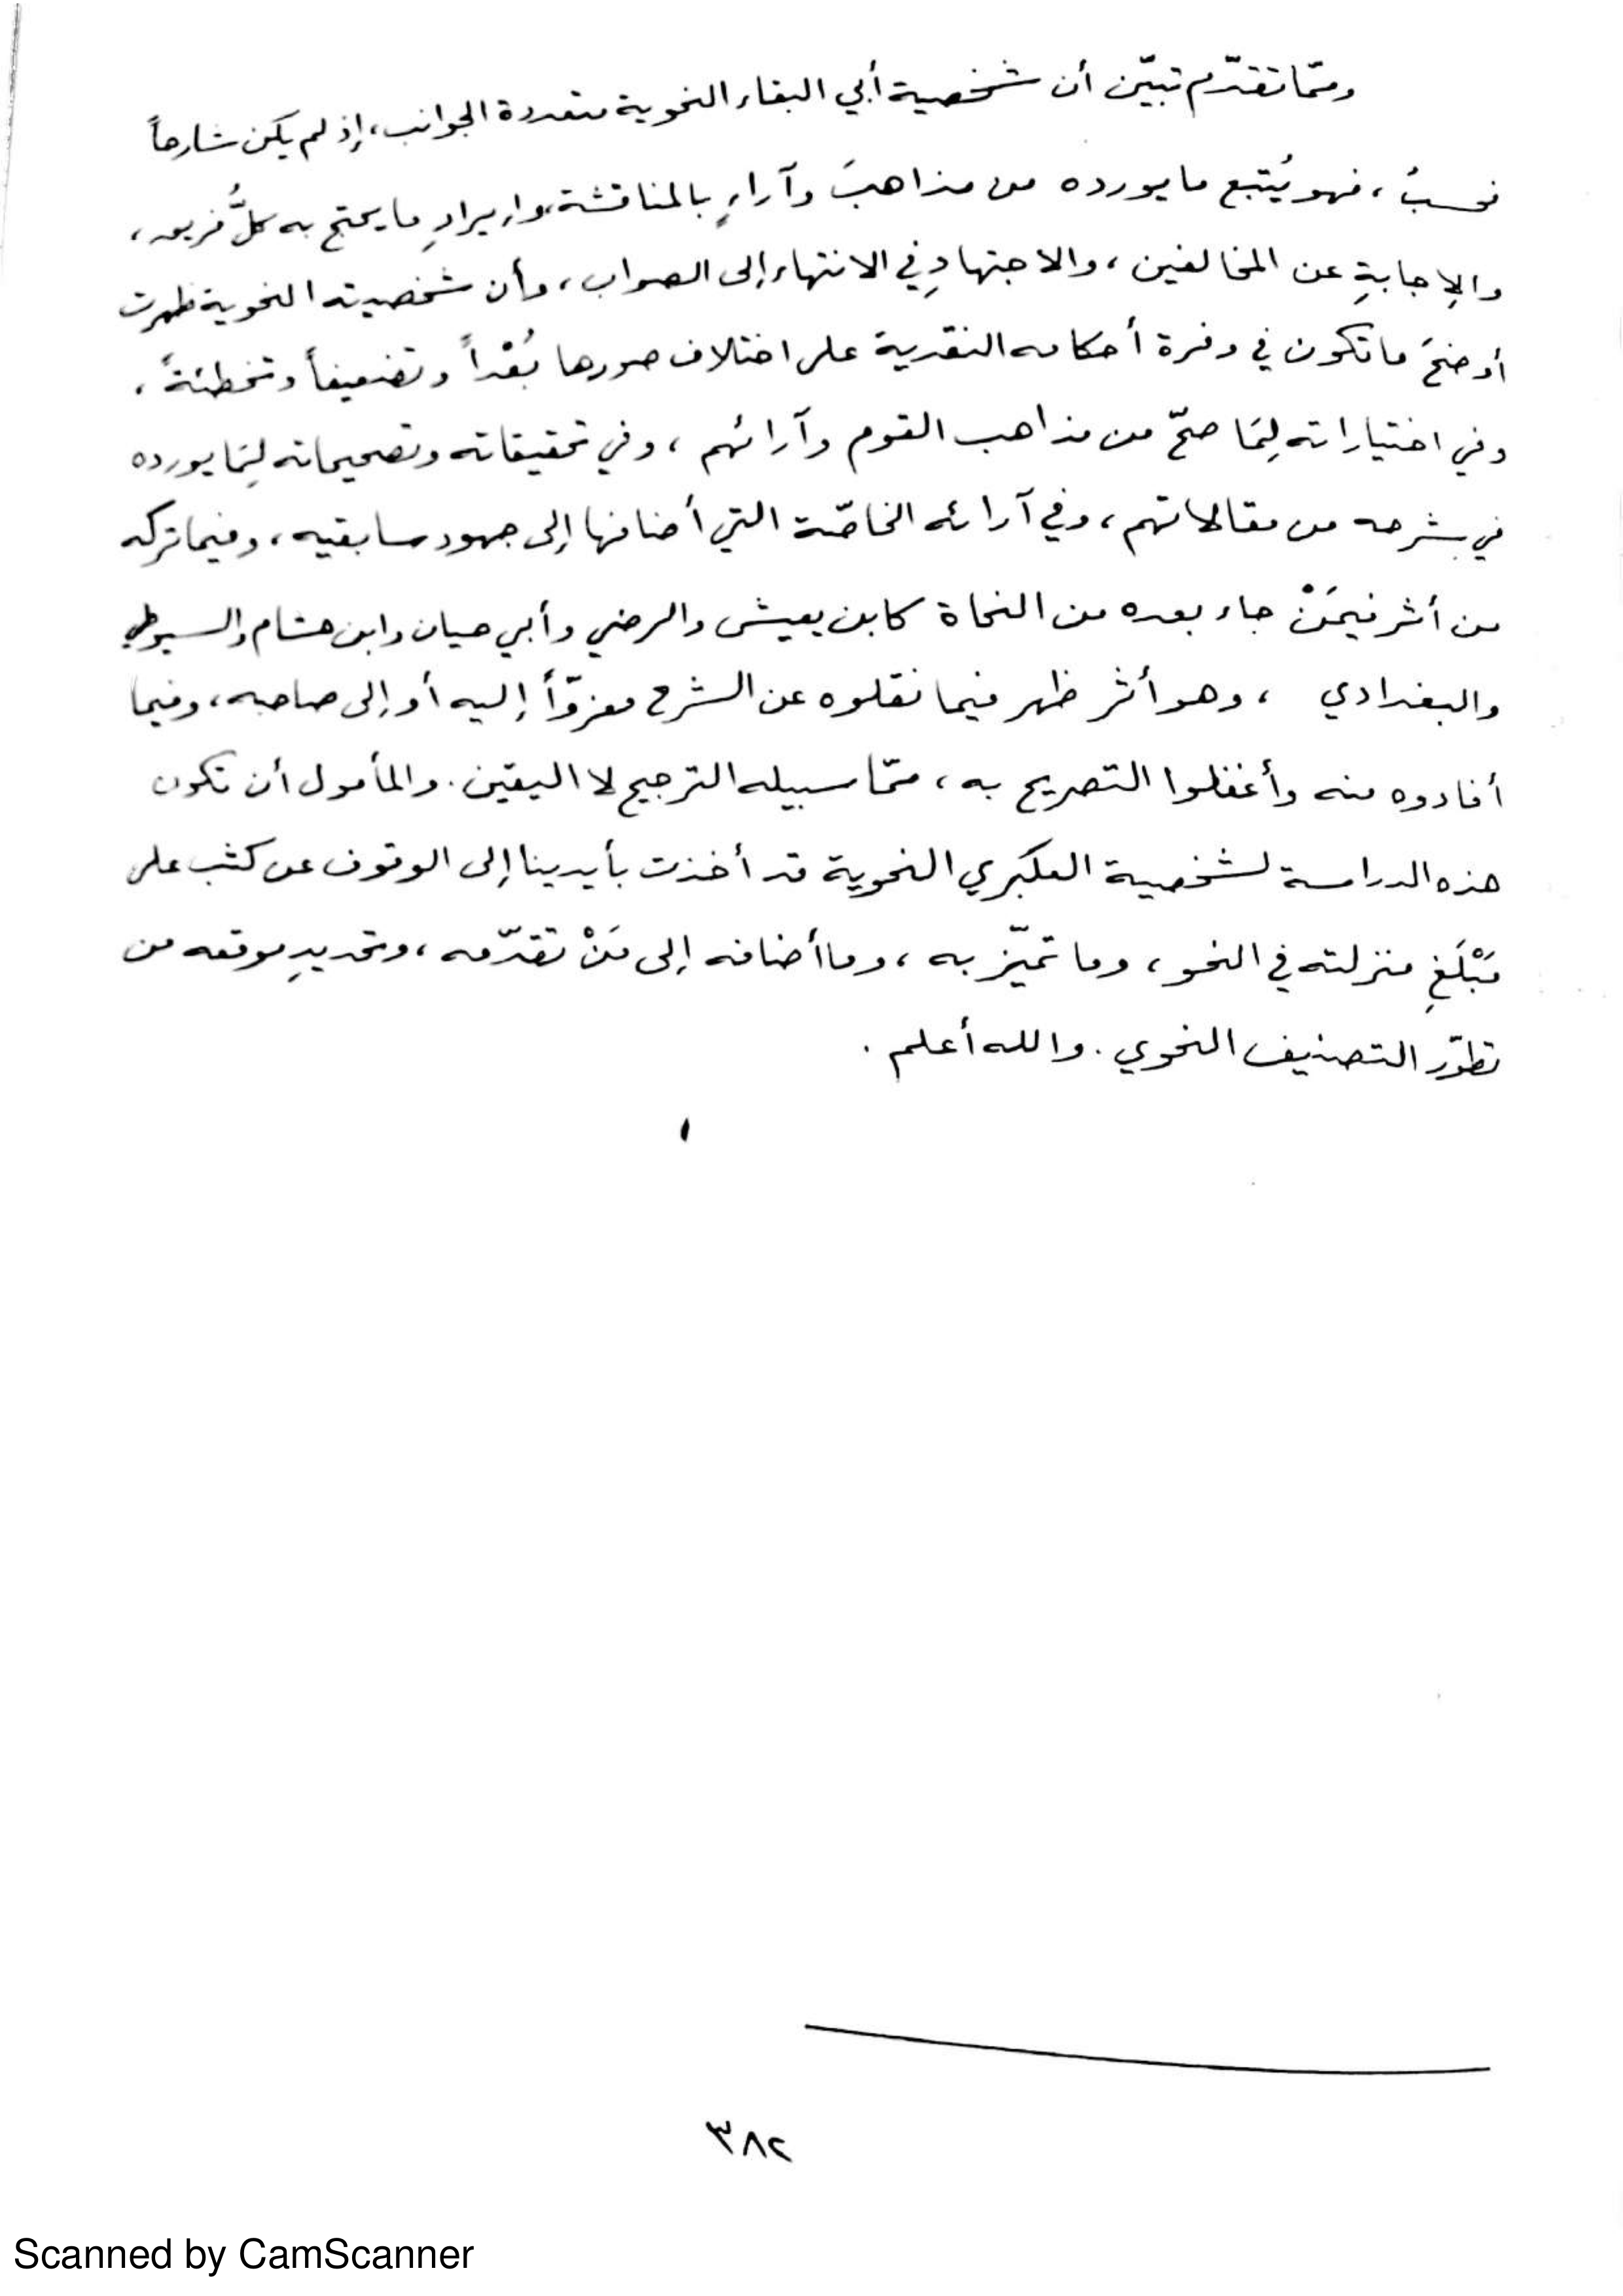 وممّا تقدّم تبيّن أن شخصية أبي البقاء النحوية متعددة الجوانب، إذ لم يكن شارحاً
فحسبُ، فهو يُتبع ما يورده من مذاهبَ وآراءٍ بالمناقشة، وإيرادِ ما يحتج به كلُّ فريق،
والإجابةِ عن المخالفين، والاجتهادِ في الانتهاء إلى الصواب، وأن شخصيته النحوية ظهرت
أوضحَ ما تكون في وفرة أحكامه النقدية على اختلاف صورها بُعْداً وتضعيفاً وتخطئةً،
وفي اختياراته لِمَا صحّ من مذاهب القوم وآرائهم، وفي تحقيقاته وتصحيحاته لِمَا يورده
في شرحه من مقالاتهم، وفي آرائه الخاصّة التي أضافها إلى جهود سابقيه، وفيما تركه
من أثر فيمَنْ جاء بعده من النحاة كابن يعيش والرضي وأبي حيان وابن هشام والسيوطي
والبغدادي ، وهو أثر ظهر فيما نقلوه عن الشرح معزوّاً إليه أو إلى صاحبه، وفيما
أفادوه منه وأغفلوا التصريح به، ممّا سبيله الترجيح لا اليقين. والمأمول أن تكون
هذه الدراسة لشخصية العكبري النحوية قد أخذت بأيدينا إلى الوقوف عن كثب على
مَبْلَغِ منزلته في النحو، وما تميّز به، وما أضافه إلى مَنْ تقدّمه، وتحديدِ موقعه من
تطوّر التصنيف النحوي. والله أعلم.
٣٨٢
Scanned by CamScanner